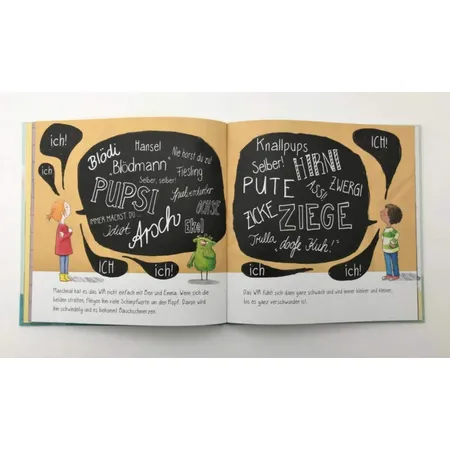 ich!
ich
Blödi
Hänsel
„Blödmann"
Nie hörst du zu!
Fiesling
Selber, selber!
PUPSI
Spielverderber
IMMER MACHST DU...
Idiot
Arsch
OCHSE
Ekel
ICH
ich!
Manchmal hat es das WIR nicht einfach mit Ben und Emma. Wenn sich die
beiden streiten, fliegen ihm viele Schimpfworte um den Kopf. Davon wird
ihm schwindelig und es bekommt Bauchschmerzen.
Knallpups
Selber!
HIRNI
ICH!
PUTE
ZWERG!
ZICKE
ZIEGE
Trulla
„doofe Kuh!"
ich
ich!
Das WIR fühlt sich dann ganz schwach und wird immer kleiner und kleiner,
bis es ganz verschwunden ist.